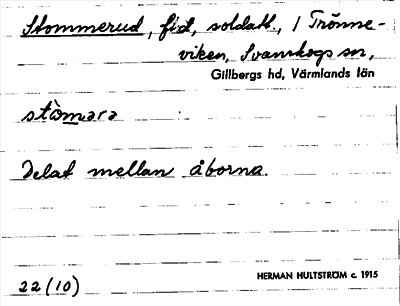 Stommerud, f.d., soldatt., i Trönne-
viken, Svanskogs sn,
Gillbergs hd, Värmlands län
stòmara
Delat mellan åborna.
HERMAN HULTSTRÖM c. 1915
22 (10)